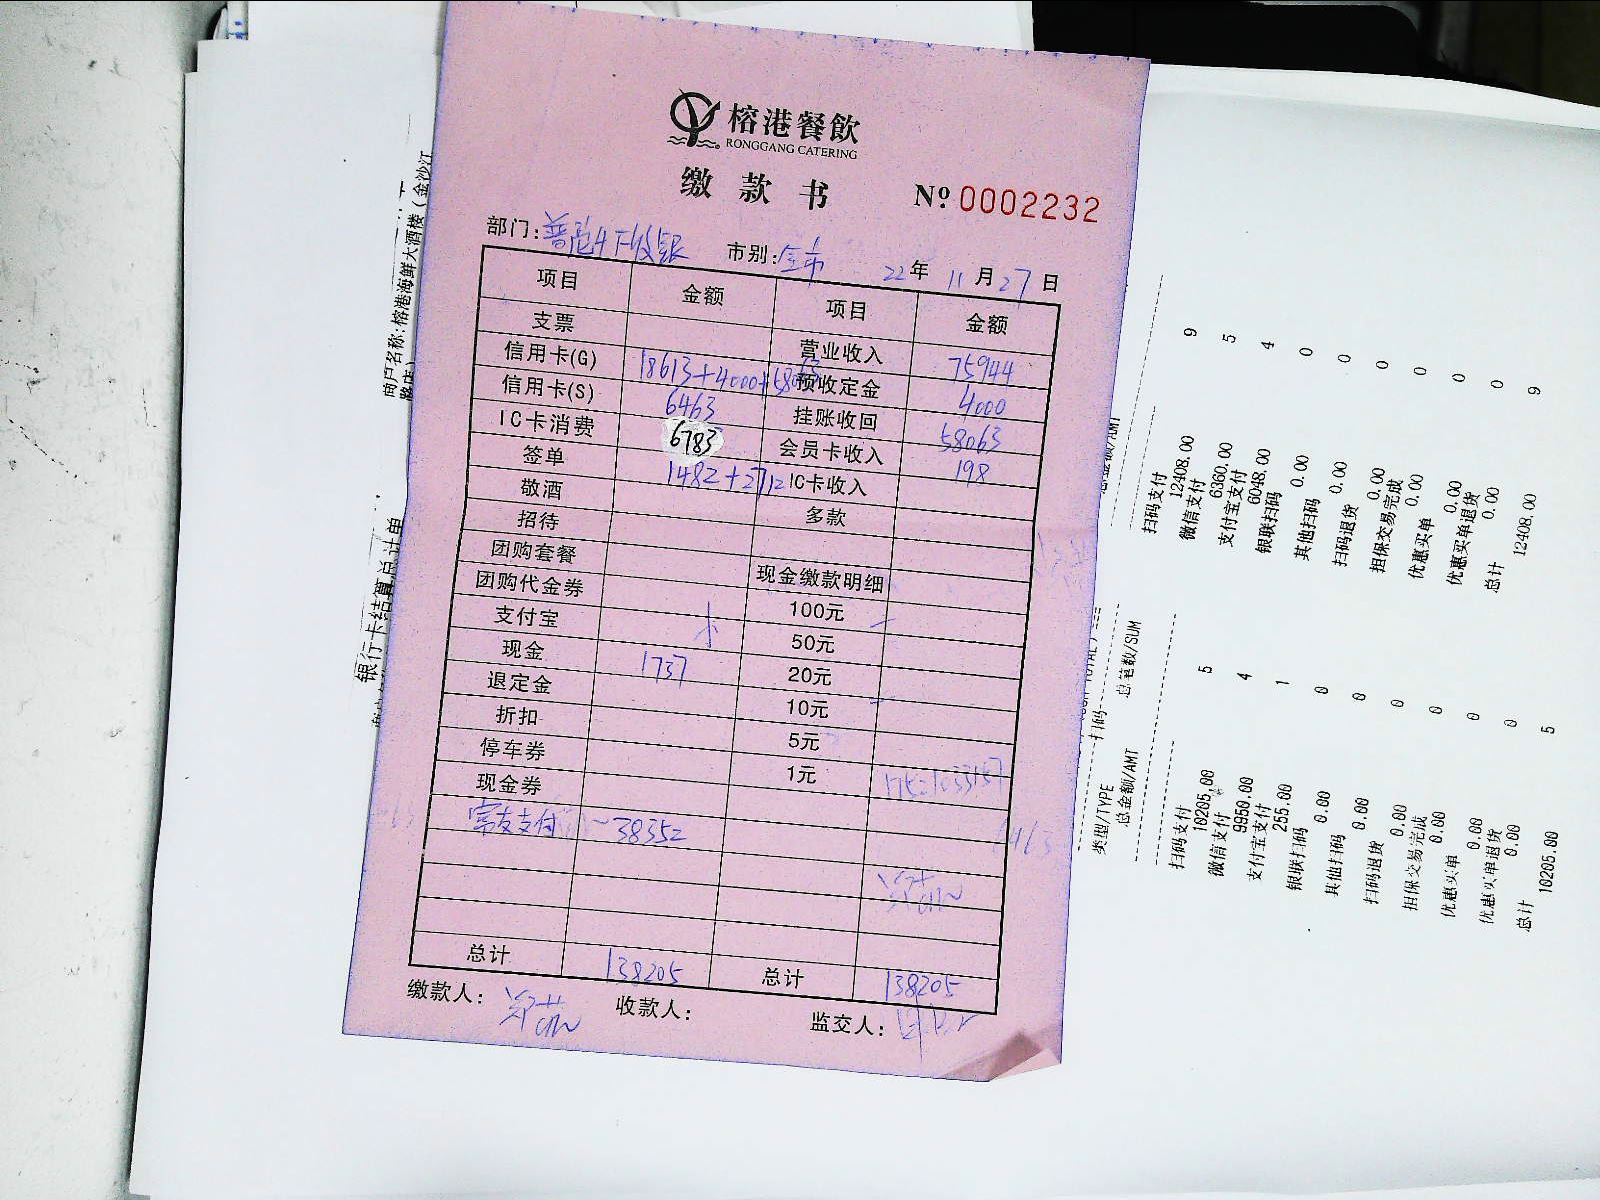 榕港餐飲
RONGGANG CATERING
缴款书 Nº 0002232
部门: 普陀 市别: 全市 22年 11月27日
项目 金额 项目 金额
支票 营业收入 75944
信用卡(G) 18613+4000+58063 预收定金 4000
信用卡(S) 6463 挂账收回 58063
IC卡消费 6783 会员卡收入 198
签单 1482+2712 IC卡收入
敬酒 多款
招待
团购套餐 现金缴款明细
团购代金券 100元
支付宝 50元
现金 1737 20元
退定金 10元
折扣 5元
停车券 1元
现金券
支付 38352
总计 138205 总计 138205
缴款人: 收款人: 监交人:
商户名称:榕港海鲜大酒楼(金沙江
路店)
银行卡结算总计单
扫码支付 9
12408.00
微信支付 5
6360.00
支付宝支付 4
6048.00
银联扫码 0
0.00
其他扫码 0
0.00
扫码退货 0
0.00
担保交易完成 0
0.00
优惠买单 0
0.00
优惠买单退货 0
0.00
总计 9
12408.00
扫码
类型/TYPE 总笔数/SUM
总金额/AMT
扫码支付 5
10205.00
微信支付 4
9950.00
支付宝支付 1
255.00
银联扫码 0
0.00
其他扫码 0
0.00
扫码退货 0
0.00
担保交易完成 0
0.00
优惠买单 0
0.00
优惠买单退货 0
0.00
总计 5
10205.00